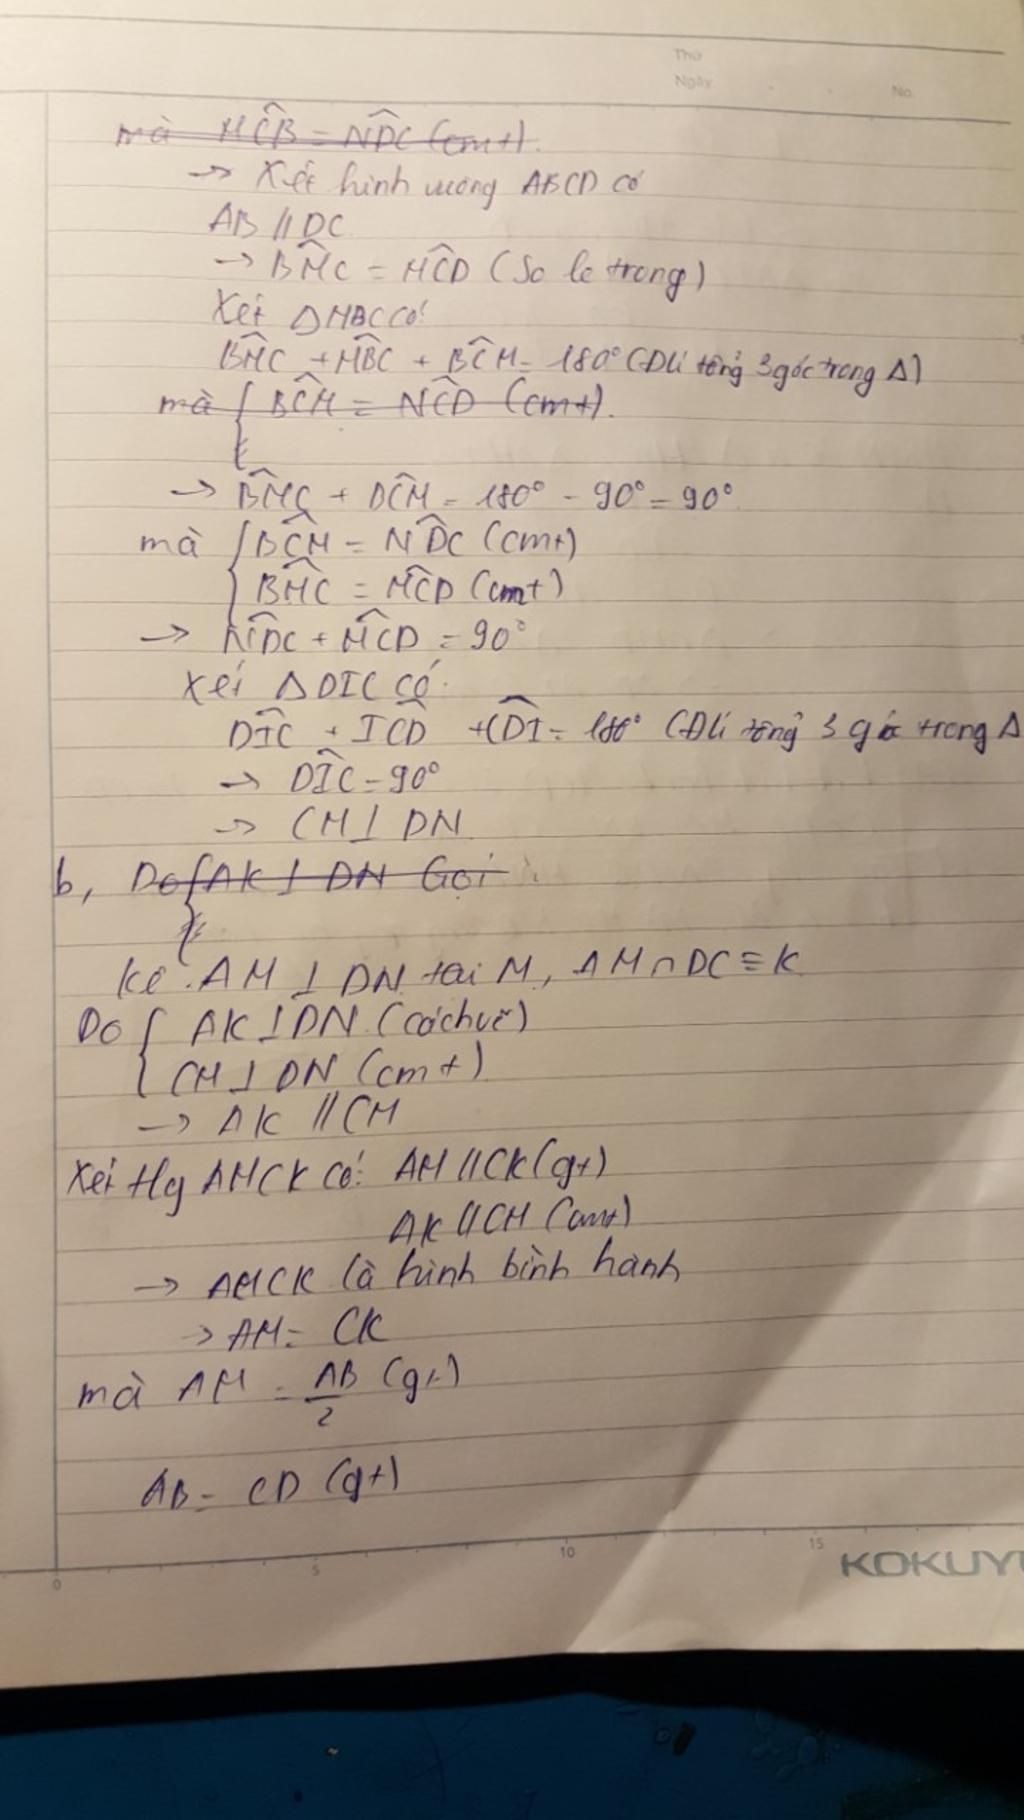 Thứ
Ngày
No.
mà MĈB = ND̂C (cmt).
→ Xét hình vuông ABCD có
AB // DC
→ BM̂C = MĈD (So le trong)
Xét ΔMBC có:
BM̂C + MB̂C + BĈM = 180° (Đlí tổng 3 góc trong Δ)
mà { BĈM = NĈD (cmt).
→ BM̂C + BĈM = 180° - 90° = 90°
mà { BĈM = ND̂C (cmt)
BM̂C = MĈD (cmt)
→ ND̂C + MĈD = 90°
Xét ΔDIC có:
DÎC + IĈD + CD̂I = 180° (Đlí tổng 3 góc trong Δ
→ DÎC = 90°
→ CM ⊥ DN
b, Do { AK ⊥ DN Gọi
Kẻ AM ⊥ DN tại M, AM ∩ DC ≡ K
Do { AK ⊥ DN (cách vẽ)
CM ⊥ DN (cmt)
→ AK // CM
Xét tfg AMCK có: AM // CK (gt)
AK // CM (cmt)
→ AMCK là hình bình hành
→ AM = CK
mà AM = AB/2 (gt)
AB = CD (gt)
0 5 10 15
KOKUY